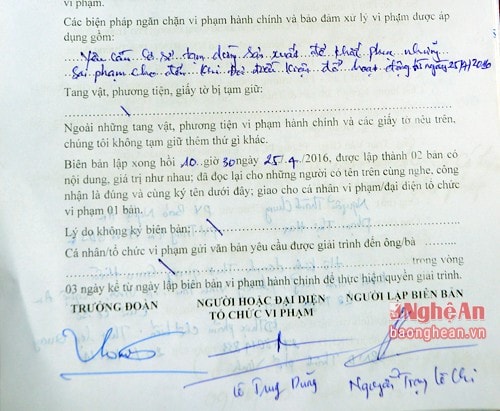 Các biện pháp ngăn chặn vi phạm hành chính và bảo đảm xử lý vi phạm được áp
dụng gồm:
Yêu cầu cơ sở tạm dừng sản xuất để khắc phục những
sai phạm cho đến khi đủ điều kiện để hoạt động từ ngày 25/4/2016
Tang vật, phương tiện, giấy tờ bị tạm giữ:
Ngoài những tang vật, phương tiện vi phạm hành chính và các giấy tờ nêu trên,
chúng tôi không tạm giữ thêm thứ gì khác.
Biên bản lập xong hồi 10 giờ 30 ngày 25/4/2016, được lập thành 02 bản có
nội dung, giá trị như nhau; đã đọc lại cho những người có tên trên cùng nghe, công
nhận là đúng và cùng ký tên dưới đây; giao cho cá nhân vi phạm/đại diện tổ chức
vi phạm 01 bản.
Lý do không ký biên bản:
Cá nhân/tổ chức vi phạm gửi văn bản yêu cầu được giải trình đến ông/bà
trong vòng
03 ngày kể từ ngày lập biên bản vi phạm hành chính để thực hiện quyền giải trình.
TRƯỞNG ĐOÀN NGƯỜI HOẶC ĐẠI DIỆN NGƯỜI LẬP BIÊN BẢN
TỔ CHỨC VI PHẠM
NghệAn
baonghean.vn
Lê Trung Dũng Nguyễn Trọng Lê Chi